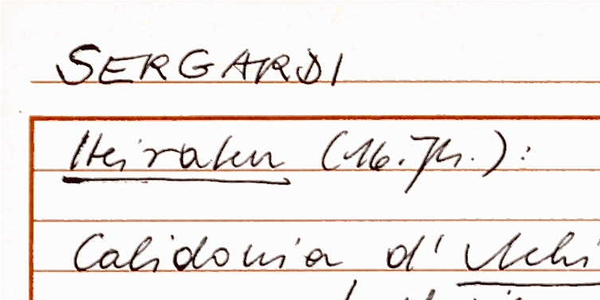 SERGARDI
Heiraten (16. Jh.):
Calidonia d'